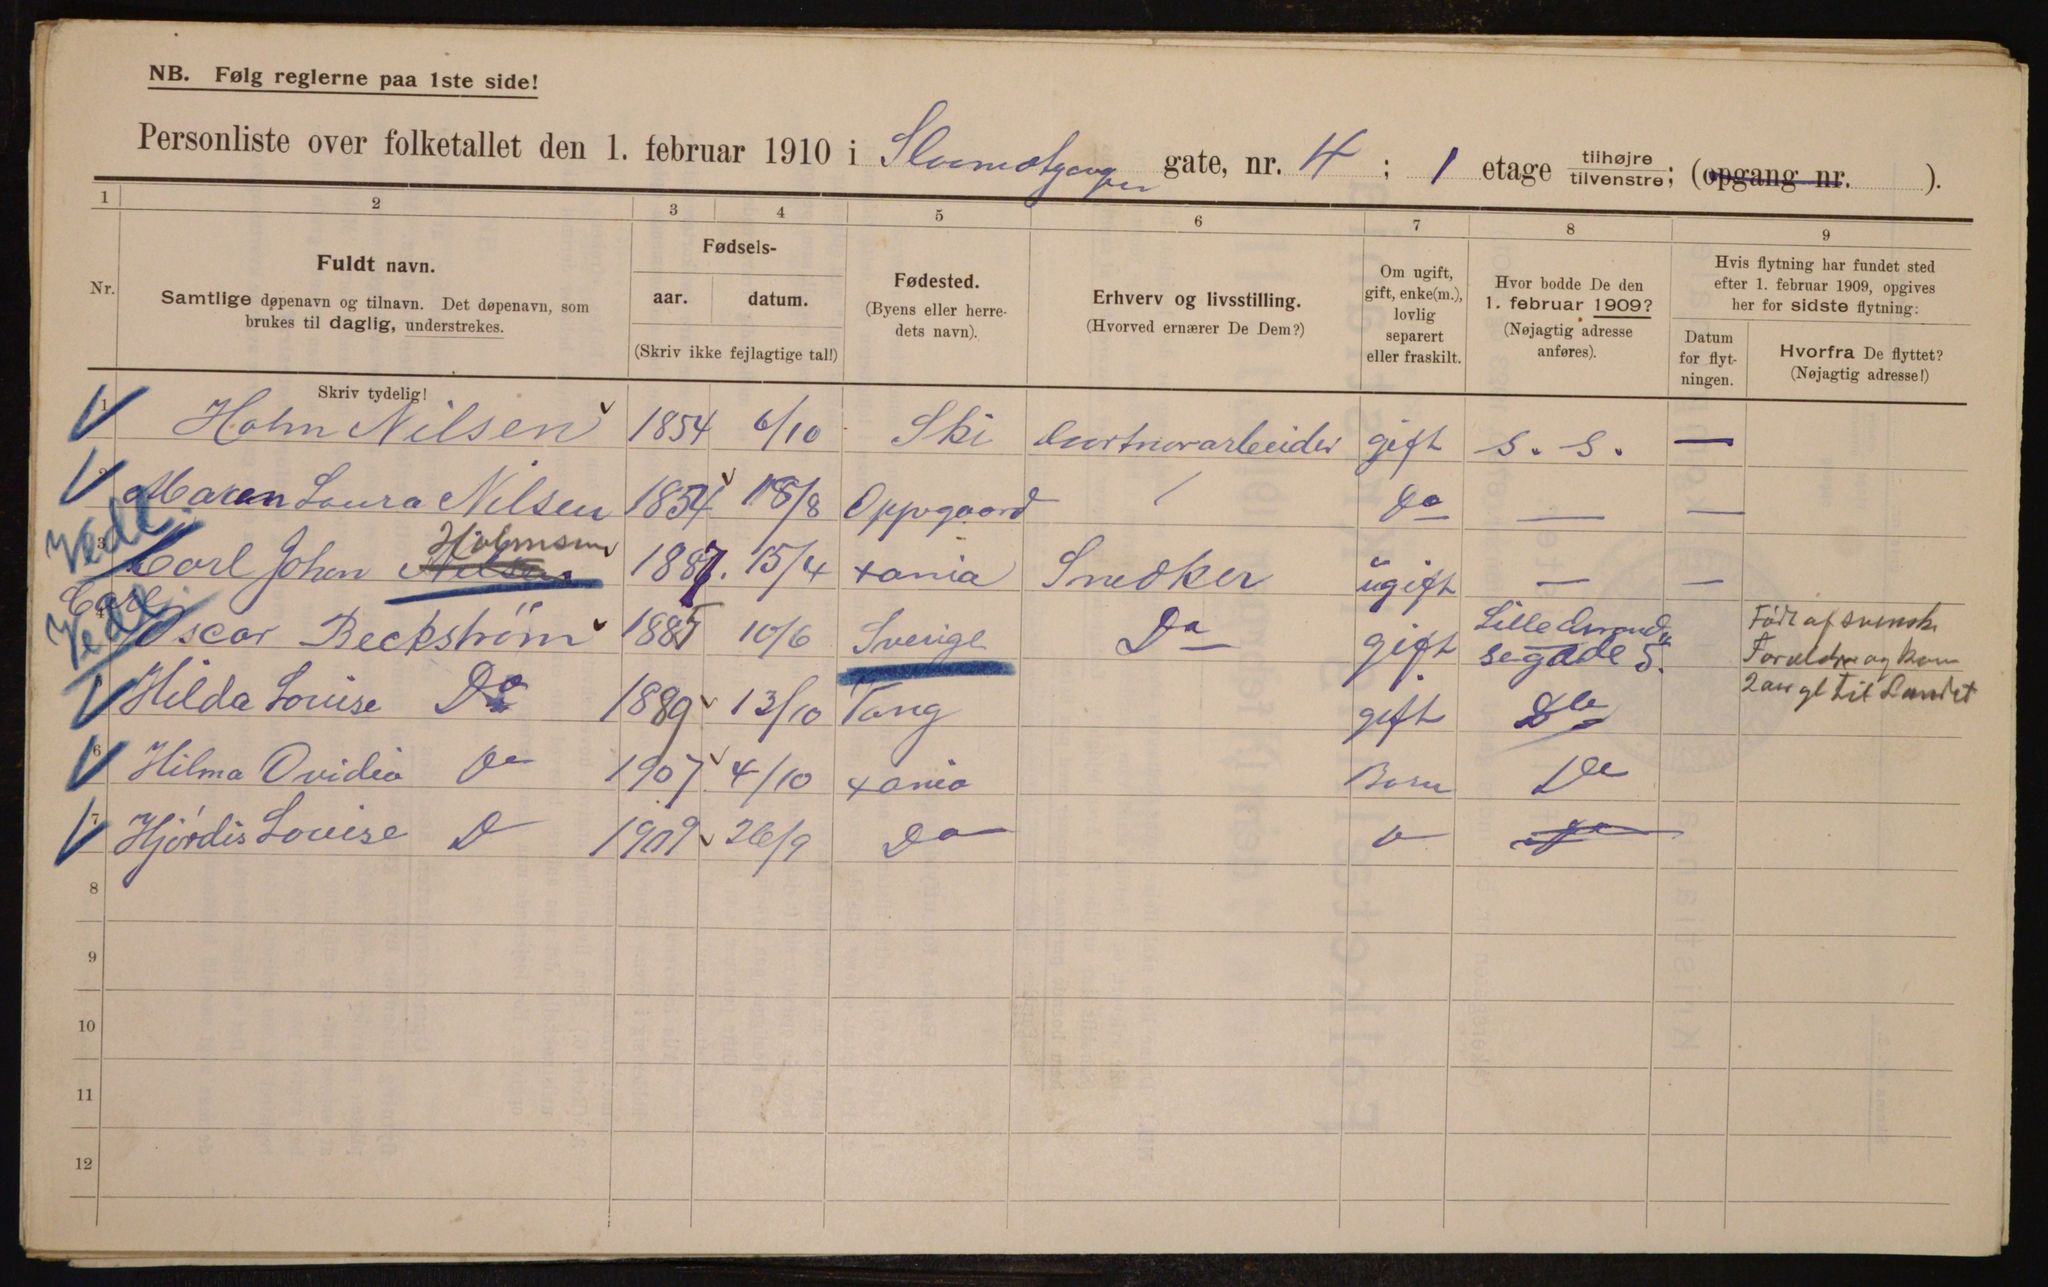 NB. Følg reglerne paa 1ste side!
Personliste over folketallet den 1. februar 1910 i gate, nr. 4; 1 etage tilhøjre tilvenstre; (opgang nr. ).
1 2 3 4 5 6 7 8 9
Nr.
Fuldt navn.
Samtlige døpenavn og tilnavn. Det døpenavn, som
brukes til daglig, understrekes.
Skriv tydelig!
Fødsels-
aar. datum.
(Skriv ikke fejlagtige tal!)
Fødested.
(Byens eller herre-
dets navn).
Erhverv og livsstilling.
(Hvorved ernærer De Dem?)
Om ugift,
gift, enke(m.),
lovlig
separert
eller fraskilt.
Hvor bodde De den
1. februar 1909?
(Nøjagtig adresse
anføres).
Hvis flytning har fundet sted
efter 1. februar 1909, opgives
her for sidste flytning:
Datum
for flyt-
ningen.
Hvorfra De flyttet?
(Nøjagtig adresse!)
1 Holm Nilsen 1854 6/10 Ski gift s. s. —
2 Maren Laura Nilsen 1854 18/8 Oppegaard / Do — —
Vedl.
3 Carl Johan Nilsen Holmsen 1887. 15/4 xania Snedker ugift — —
Vedl.
4 Carl Oscar Beckström 1885 10/6 Sverige Do gift Lille segade 5. Født af svenske
Forældre og kom
2 aar gl til Landet
Hilda Louise Do 1889 13/10 Vang gift Do
6 Hilma Ovidia Do 1907 4/10 xania Barn Do
7 Hjördis Louise D 1909 26/9 Do
8
9
10
11
12